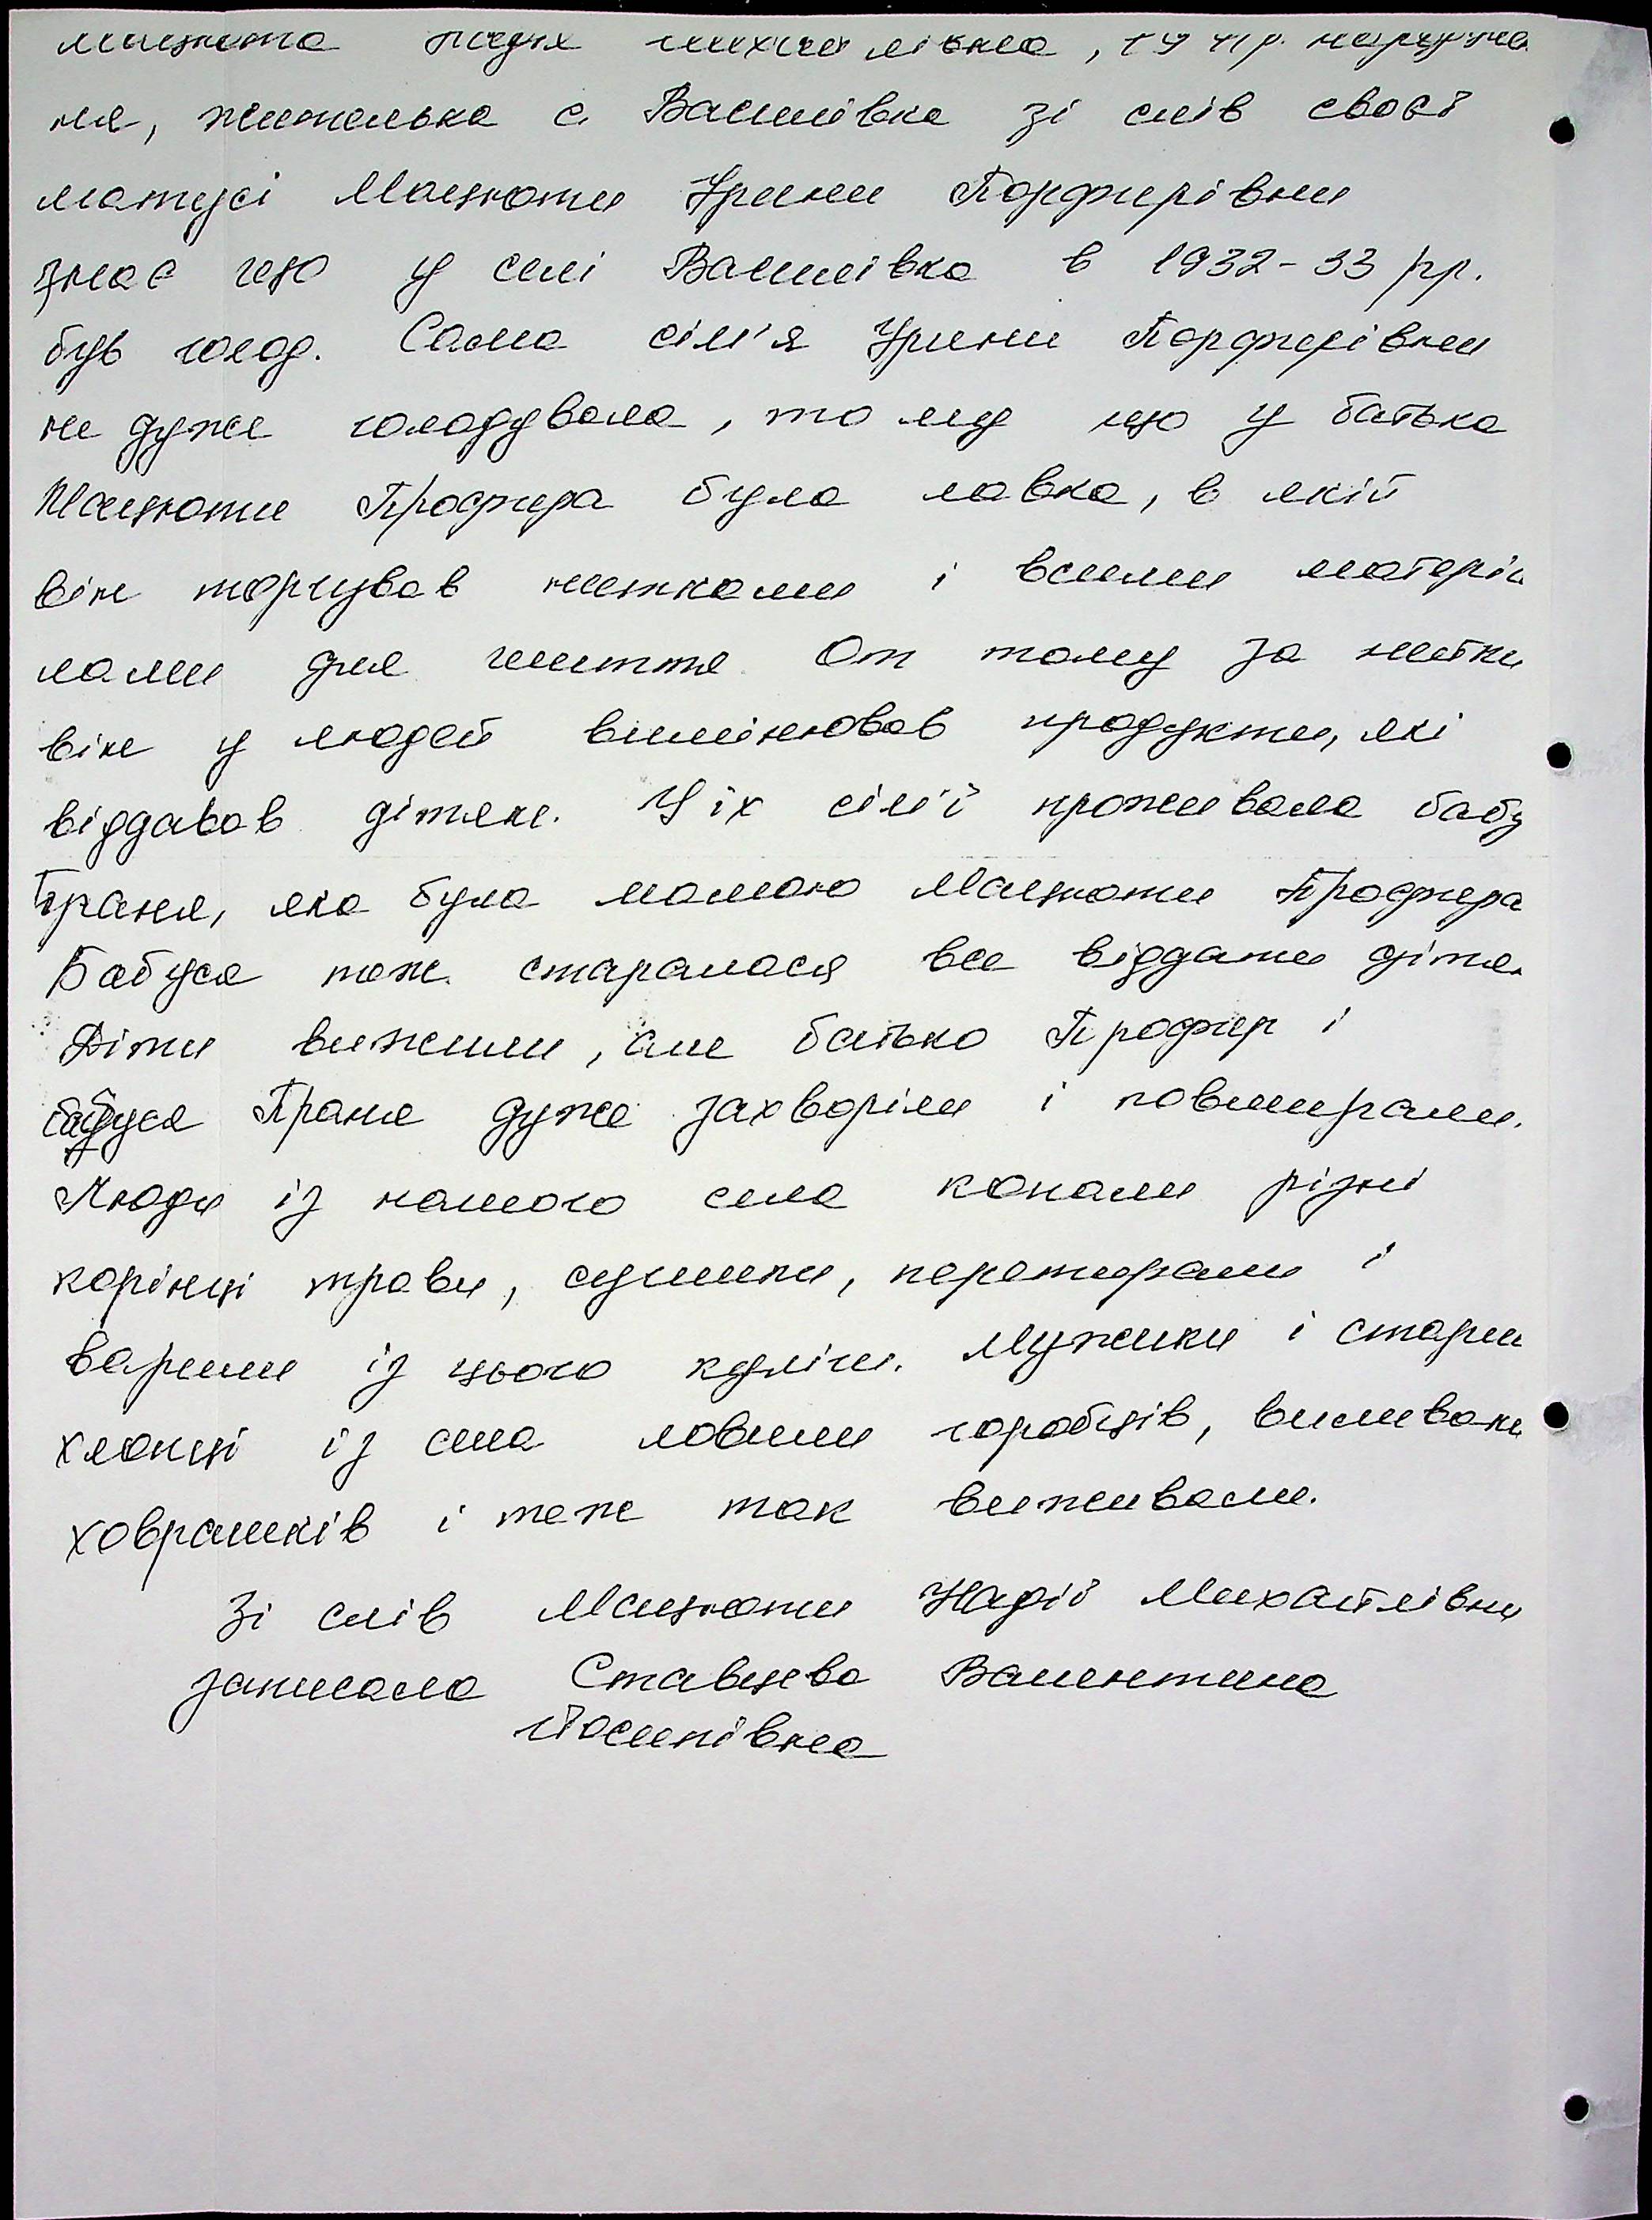 Мацюта Надія Михайлівна, 1941р. народжен
ня, жителька с. Василівка зі слів своєї
матусі Мацюти Ірини Порфирівни
знає що у селі Василівка в 1932-33 рр.
був голод. Сама сім'я Ірини Порфирівни
не дуже голодувала, тому що у батька
Мацюти Профира була лавка, в якій
він торгував нитками і всими матеріа
лами для шиття. От тому за нитки
він у людей вимінював продукти, які
віддавав дітям. У їх сім'ї проживала бабу
Праня, яка була мамою Мацюти Профира
Бабуся теж старалася все віддати дітям
Діти вижили, але батько Профир і
бабуся Праня дуже захворіли і повмирали.
Люди із нашого села копали різні
корінці трави, сушили, перетирали і
варили із цього куліш. Мужики і старші
хлопці із села ловили горобців, виливали
ховрашків і теж так виживали.
Зі слів Мацюти Надії Михайлівни
записала Ставцева Валентина
Йосипівна